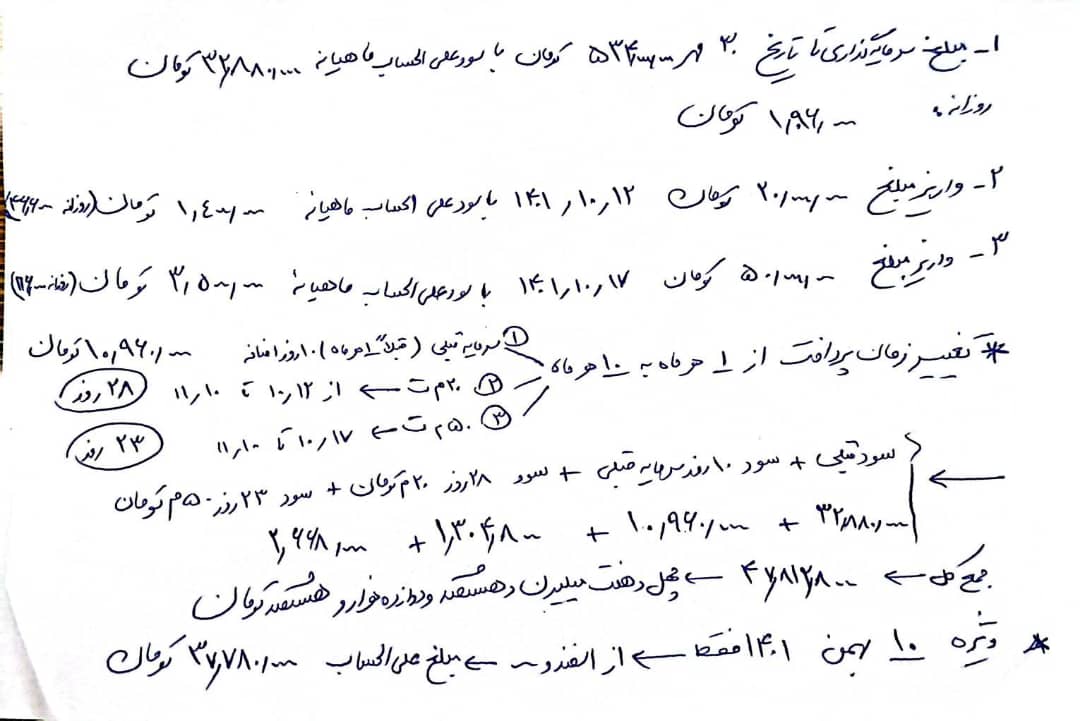 ۱- مبلغ سرمایه‌گذاری تا تاریخ ۳۰ مهر ۵۳۴,۰۰۰,۰۰۰ تومان با سود علی الحساب ماهیانه ۳۲,۸۸۰,۰۰۰ تومان
روزانه: ۱,۰۹۶,۰۰۰ تومان
۲- واریز مبلغ ۲۰,۰۰۰,۰۰۰ تومان ۱۴۰۱,۱۰,۱۲ با سود علی الحساب ماهیانه ۱,۴۰۰,۰۰۰ تومان (روزانه ۴۶,۶۰۰)
۳- واریز مبلغ ۵۰,۰۰۰,۰۰۰ تومان ۱۴۰۱,۱۰,۱۷ با سود علی الحساب ماهیانهٔ ۳,۵۰۰,۰۰۰ تومان (روزانه ۱۱۶,۰۰۰)
* تغییر زمان پرداخت از ۱ هر ماه به ۱۰ هر ماه
① سرمایه قبلی (قبلاً ۱ هر ماه) ۱۰ روز اضافه ۱۰,۹۶۰,۰۰۰ تومان
② ۲۰ م ت ← از ۱۰,۱۲ تا ۱۱,۱۰ ۲۸ روز
③ ۵۰ م ت ← ۱۰,۱۷ تا ۱۱,۱۰ ۲۳ روز
← سود قبلی + سود ۱۰ روز سرمایه قبلی + سود ۲۸ روز ۲۰ م تومان + سود ۲۳ روز ۵۰ م تومان
۳۲,۸۸۰,۰۰۰ + ۱۰,۹۶۰,۰۰۰ + ۱,۳۰۴,۸۰۰ + ۲,۶۶۸,۰۰۰
جمع کل ← ۴۷,۸۱۲,۸۰۰ ← چهل و هفت میلیون و هشتصد و دوازده هزار و هشتصد تومان
* ویژه ۱۰ بهمن ۱۴۰۱ فقط ← از اسفند و ... ← مبلغ علی الحساب ۳۷,۷۸۰,۰۰۰ تومان